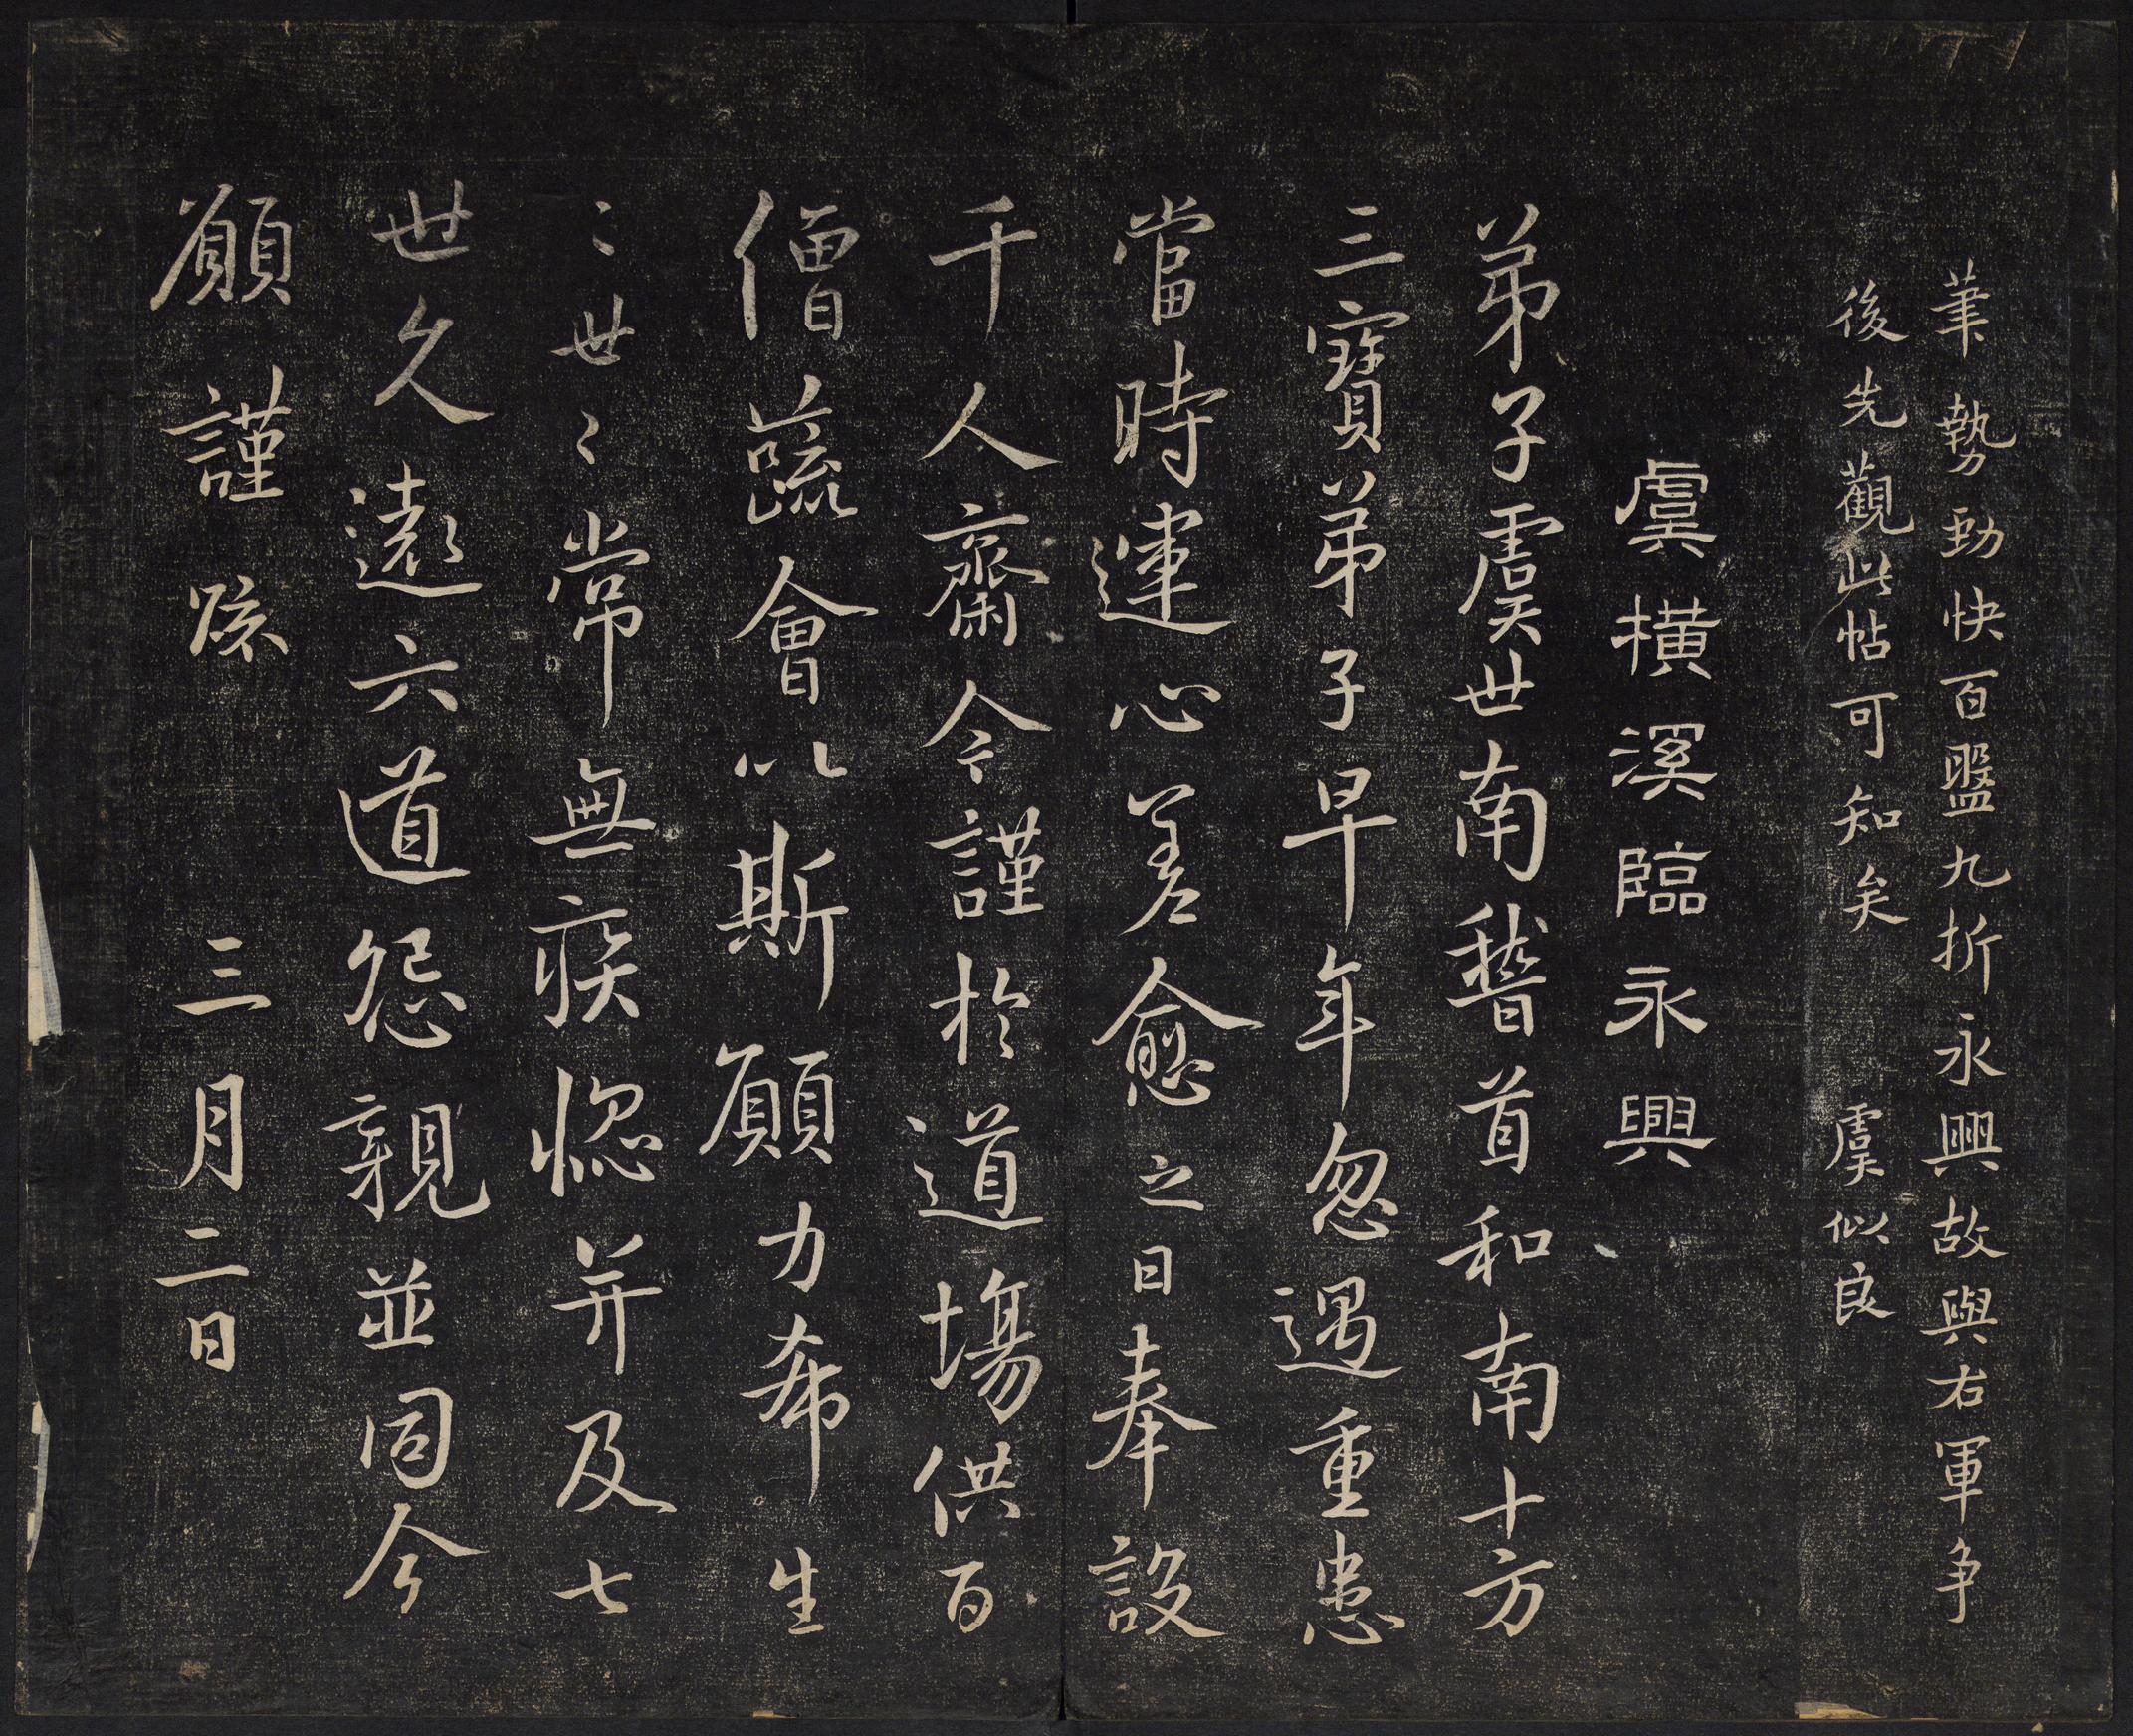 筆勢勁快百盤九折永興故與右軍争
後先觀此帖可知矣 虞似良
虞橫溪臨永興
弟子虞世南稽首和南十方
三寶弟子早年忽遇重患
當時運心差愈之日奉設
千人齋今謹於道場供百
僧蔬會以斯願力希生
〻世〻常無疾惱并及七
世久遠六道怨親並同今
願謹疏 三月二日